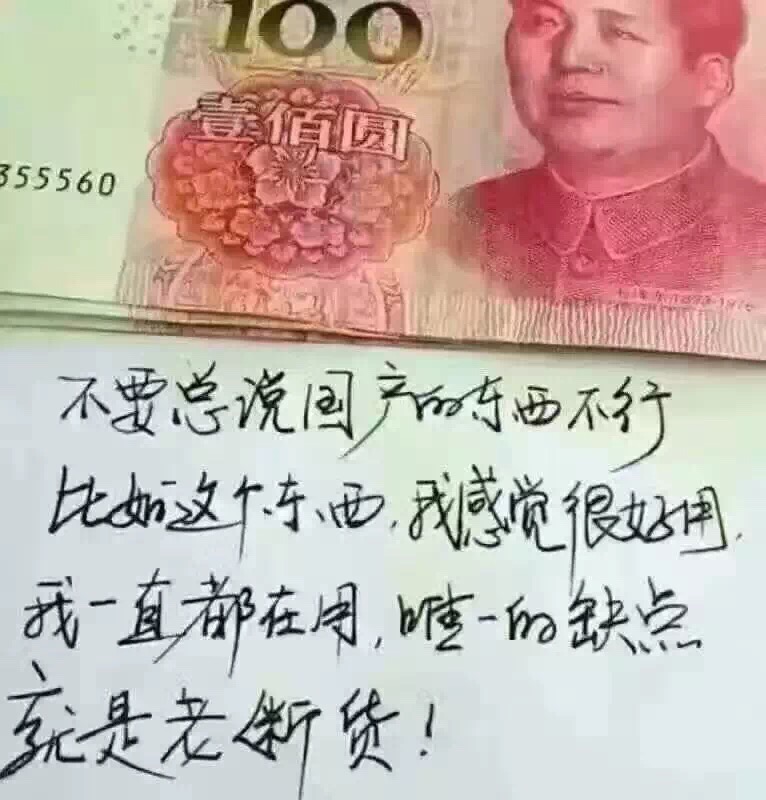 100
壹佰圆
355560
不要总说国产的东西不行
比如这个东西,我感觉很好用,
我一直都在用,唯一的缺点
就是老断货!